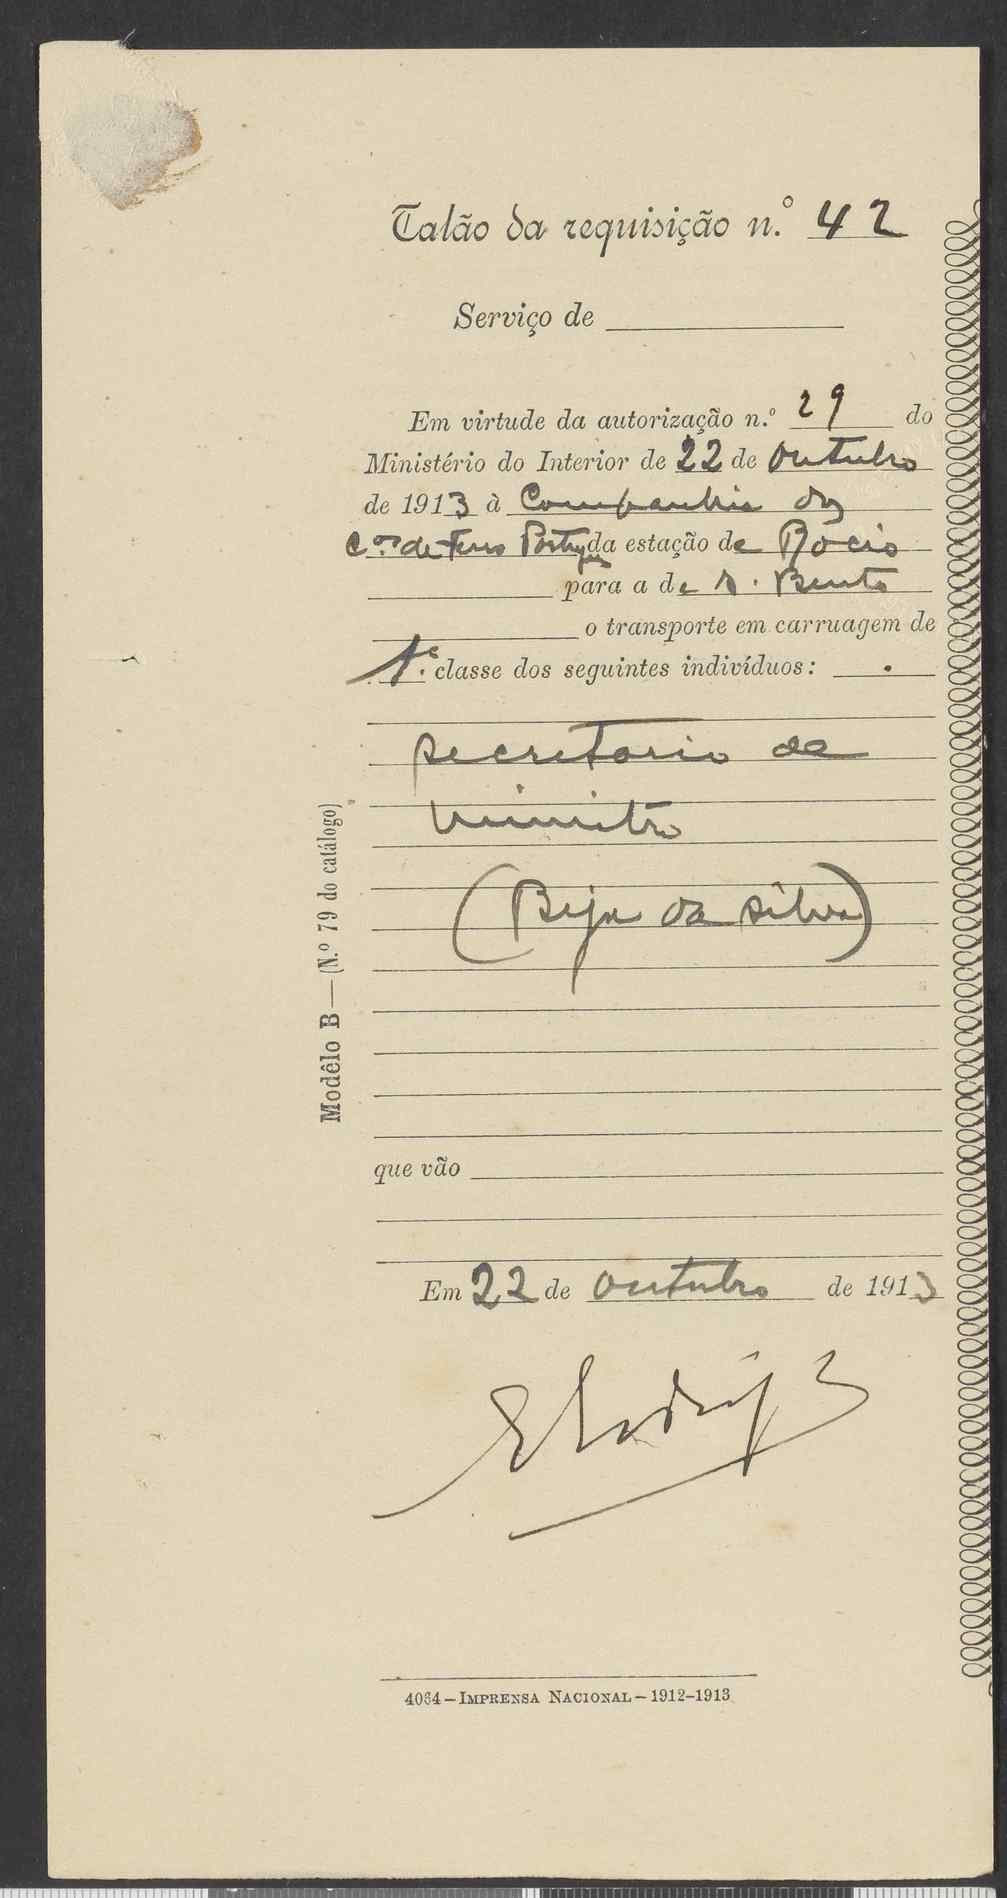 Talão da requisição n.º 42
Serviço de
Em virtude da autorização n.º 29 do
Ministério do Interior de 22 de Outubro
de 1913 à Companhia dos
C.os de Ferro Portugues da estação de Rocio
para a de S. Bento
o transporte em carruagem de
1.ª classe dos seguintes indivíduos:
secretario de
ministro
(Beja da Silva)
que vão
Em 22 de Outubro de 1913
Modêlo B—(N.º 79 do catálogo)
4064—IMPRENSA NACIONAL—1912-1913